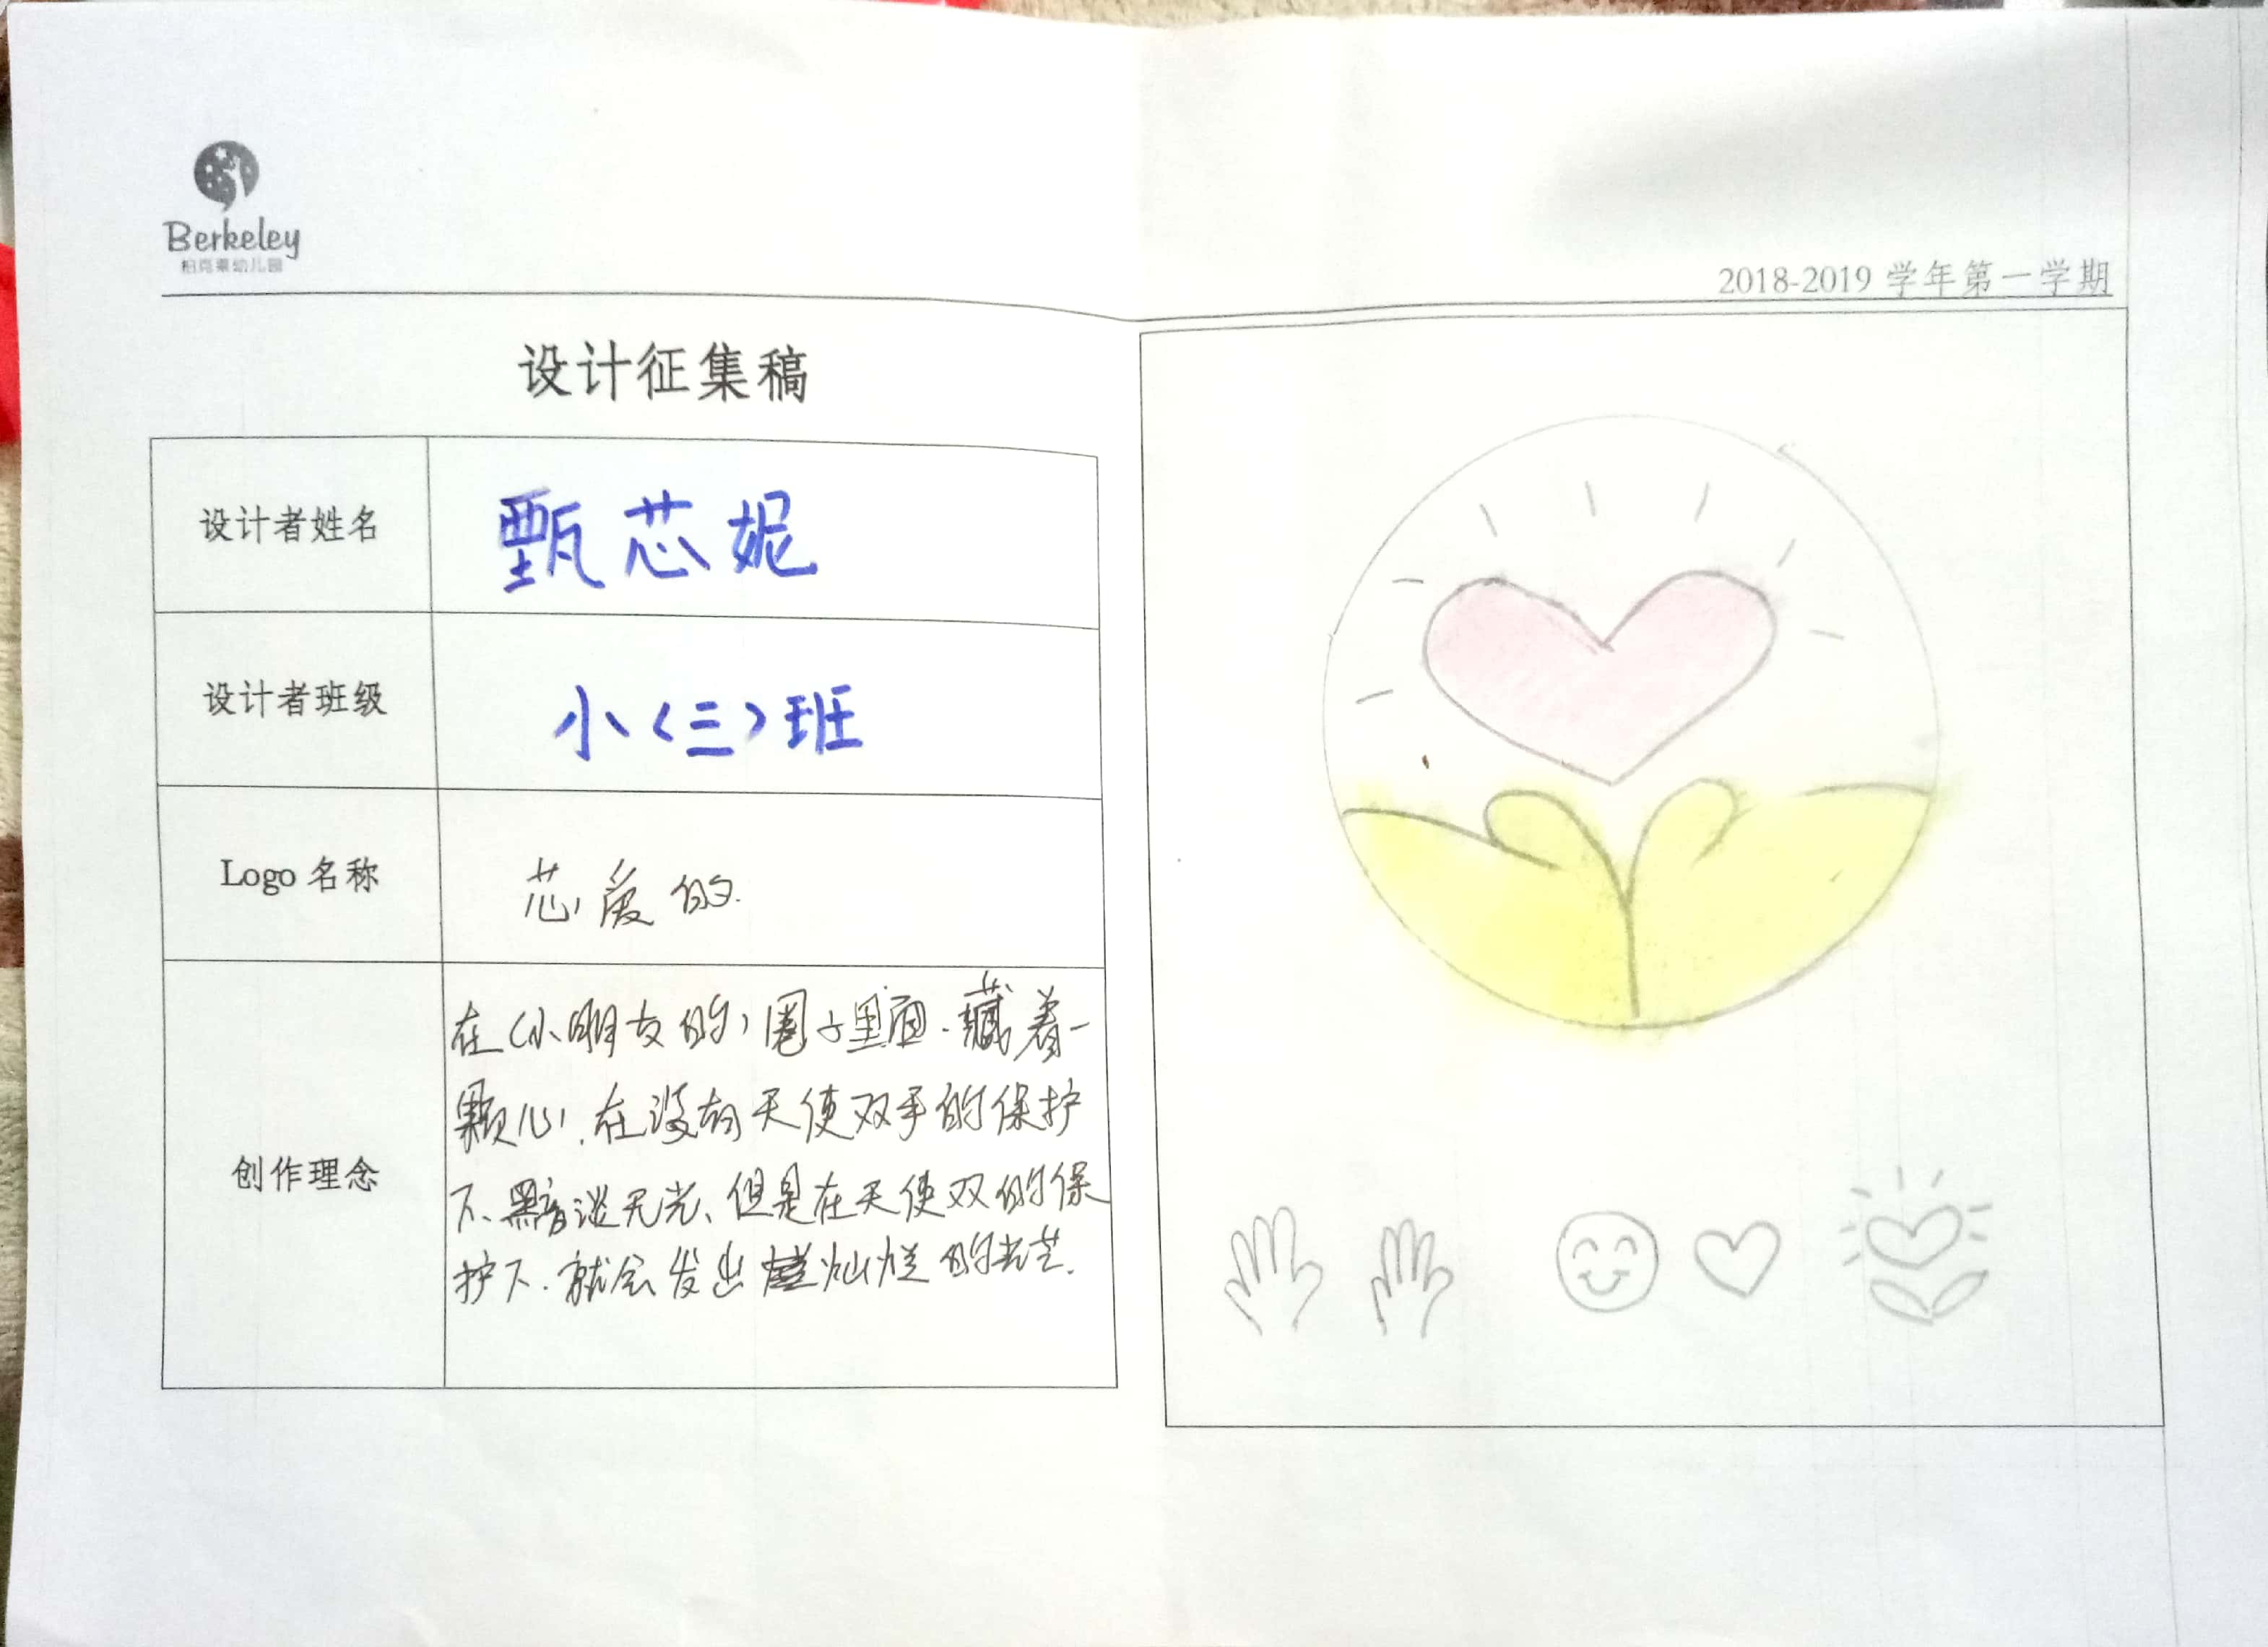 Berkeley
柏克莱幼儿园
2018-2019 学年第一学期
设计征集稿
设计者姓名
甄芯妮
设计者班级
小（三）班
Logo 名称
芯爱的.
创作理念
在（小朋友的）圈子里面.藏着一
颗心.在没有天使双手的保护
下、黯淡无光、但是在天使双的保
护下.就会发出灿烂的光芒.